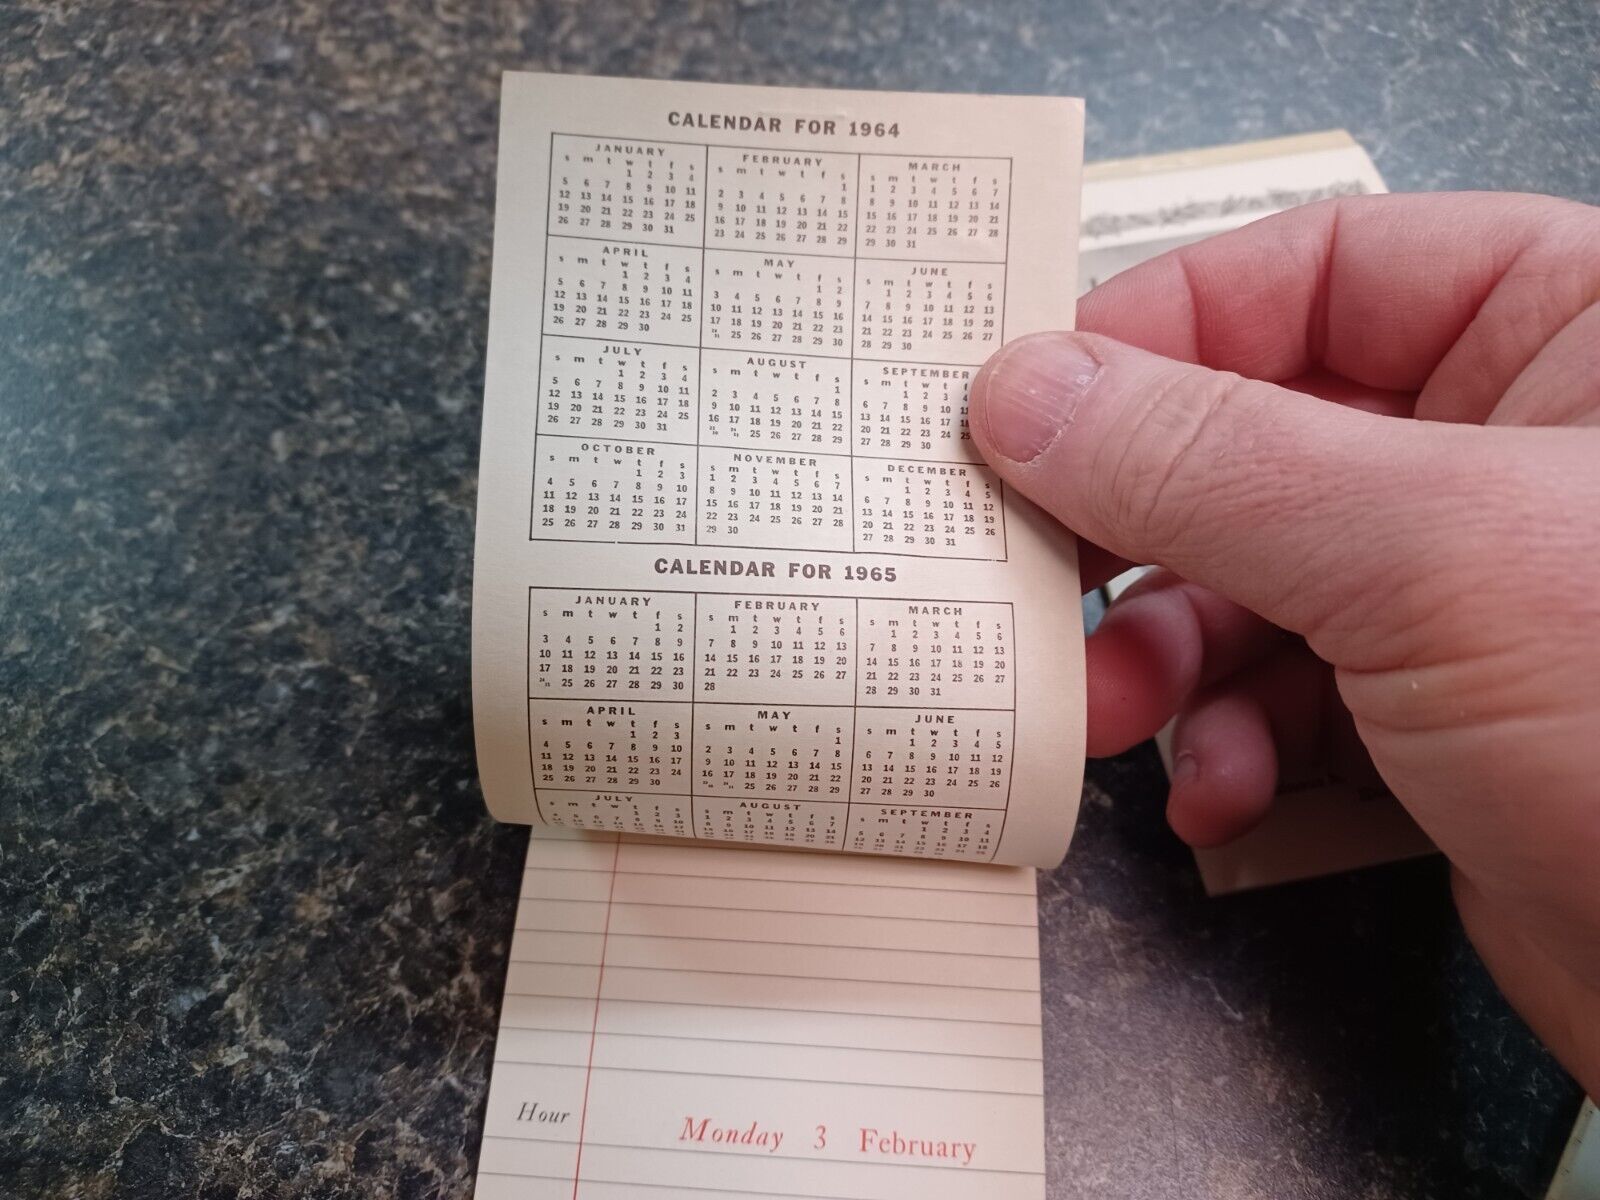 CALENDAR FOR 1964
JANUARY
s m t w t f s
1 2 3 4
5 6 7 8 9 10 11
12 13 14 15 16 17 18
19 20 21 22 23 24 25
26 27 28 29 30 31
FEBRUARY
s m t w t f s
1
2 3 4 5 6 7 8
9 10 11 12 13 14 15
16 17 18 19 20 21 22
23 24 25 26 27 28 29
MARCH
s m t w t f s
1 2 3 4 5 6 7
8 9 10 11 12 13 14
15 16 17 18 19 20 21
22 23 24 25 26 27 28
29 30 31
APRIL
s m t w t f s
1 2 3 4
5 6 7 8 9 10 11
12 13 14 15 16 17 18
19 20 21 22 23 24 25
26 27 28 29 30
MAY
s m t w t f s
1 2
3 4 5 6 7 8 9
10 11 12 13 14 15 16
17 18 19 20 21 22 23
24/31 25 26 27 28 29 30
JUNE
s m t w t f s
1 2 3 4 5 6
7 8 9 10 11 12 13
14 15 16 17 18 19 20
21 22 23 24 25 26 27
28 29 30
JULY
s m t w t f s
1 2 3 4
5 6 7 8 9 10 11
12 13 14 15 16 17 18
19 20 21 22 23 24 25
26 27 28 29 30 31
AUGUST
s m t w t f s
1
2 3 4 5 6 7 8
9 10 11 12 13 14 15
16 17 18 19 20 21 22
23/30 24/31 25 26 27 28 29
SEPTEMBER
s m t w t f
1 2 3 4
6 7 8 9 10 11
13 14 15 16 17 18
20 21 22 23 24 25
27 28 29 30
OCTOBER
s m t w t f s
1 2 3
4 5 6 7 8 9 10
11 12 13 14 15 16 17
18 19 20 21 22 23 24
25 26 27 28 29 30 31
NOVEMBER
s m t w t f s
1 2 3 4 5 6 7
8 9 10 11 12 13 14
15 16 17 18 19 20 21
22 23 24 25 26 27 28
29 30
DECEMBER
s m t w t f s
1 2 3 4 5
6 7 8 9 10 11 12
13 14 15 16 17 18 19
20 21 22 23 24 25 26
27 28 29 30 31
CALENDAR FOR 1965
JANUARY
s m t w t f s
1 2
3 4 5 6 7 8 9
10 11 12 13 14 15 16
17 18 19 20 21 22 23
24/31 25 26 27 28 29 30
FEBRUARY
s m t w t f s
1 2 3 4 5 6
7 8 9 10 11 12 13
14 15 16 17 18 19 20
21 22 23 24 25 26 27
28
MARCH
s m t w t f s
1 2 3 4 5 6
7 8 9 10 11 12 13
14 15 16 17 18 19 20
21 22 23 24 25 26 27
28 29 30 31
APRIL
s m t w t f s
1 2 3
4 5 6 7 8 9 10
11 12 13 14 15 16 17
18 19 20 21 22 23 24
25 26 27 28 29 30
MAY
s m t w t f s
1
2 3 4 5 6 7 8
9 10 11 12 13 14 15
16 17 18 19 20 21 22
23/30 24/31 25 26 27 28 29
JUNE
s m t w t f s
1 2 3 4 5
6 7 8 9 10 11 12
13 14 15 16 17 18 19
20 21 22 23 24 25 26
27 28 29 30
JULY
s m t w t f s
1 2 3
4 5 6 7 8 9 10
AUGUST
s m t w t f s
1 2 3 4 5 6 7
8 9 10 11 12 13 14
SEPTEMBER
s m t w t f s
1 2 3 4
5 6 7 8 9 10 11
12 13 14 15 16 17 18
Hour
Monday 3 February